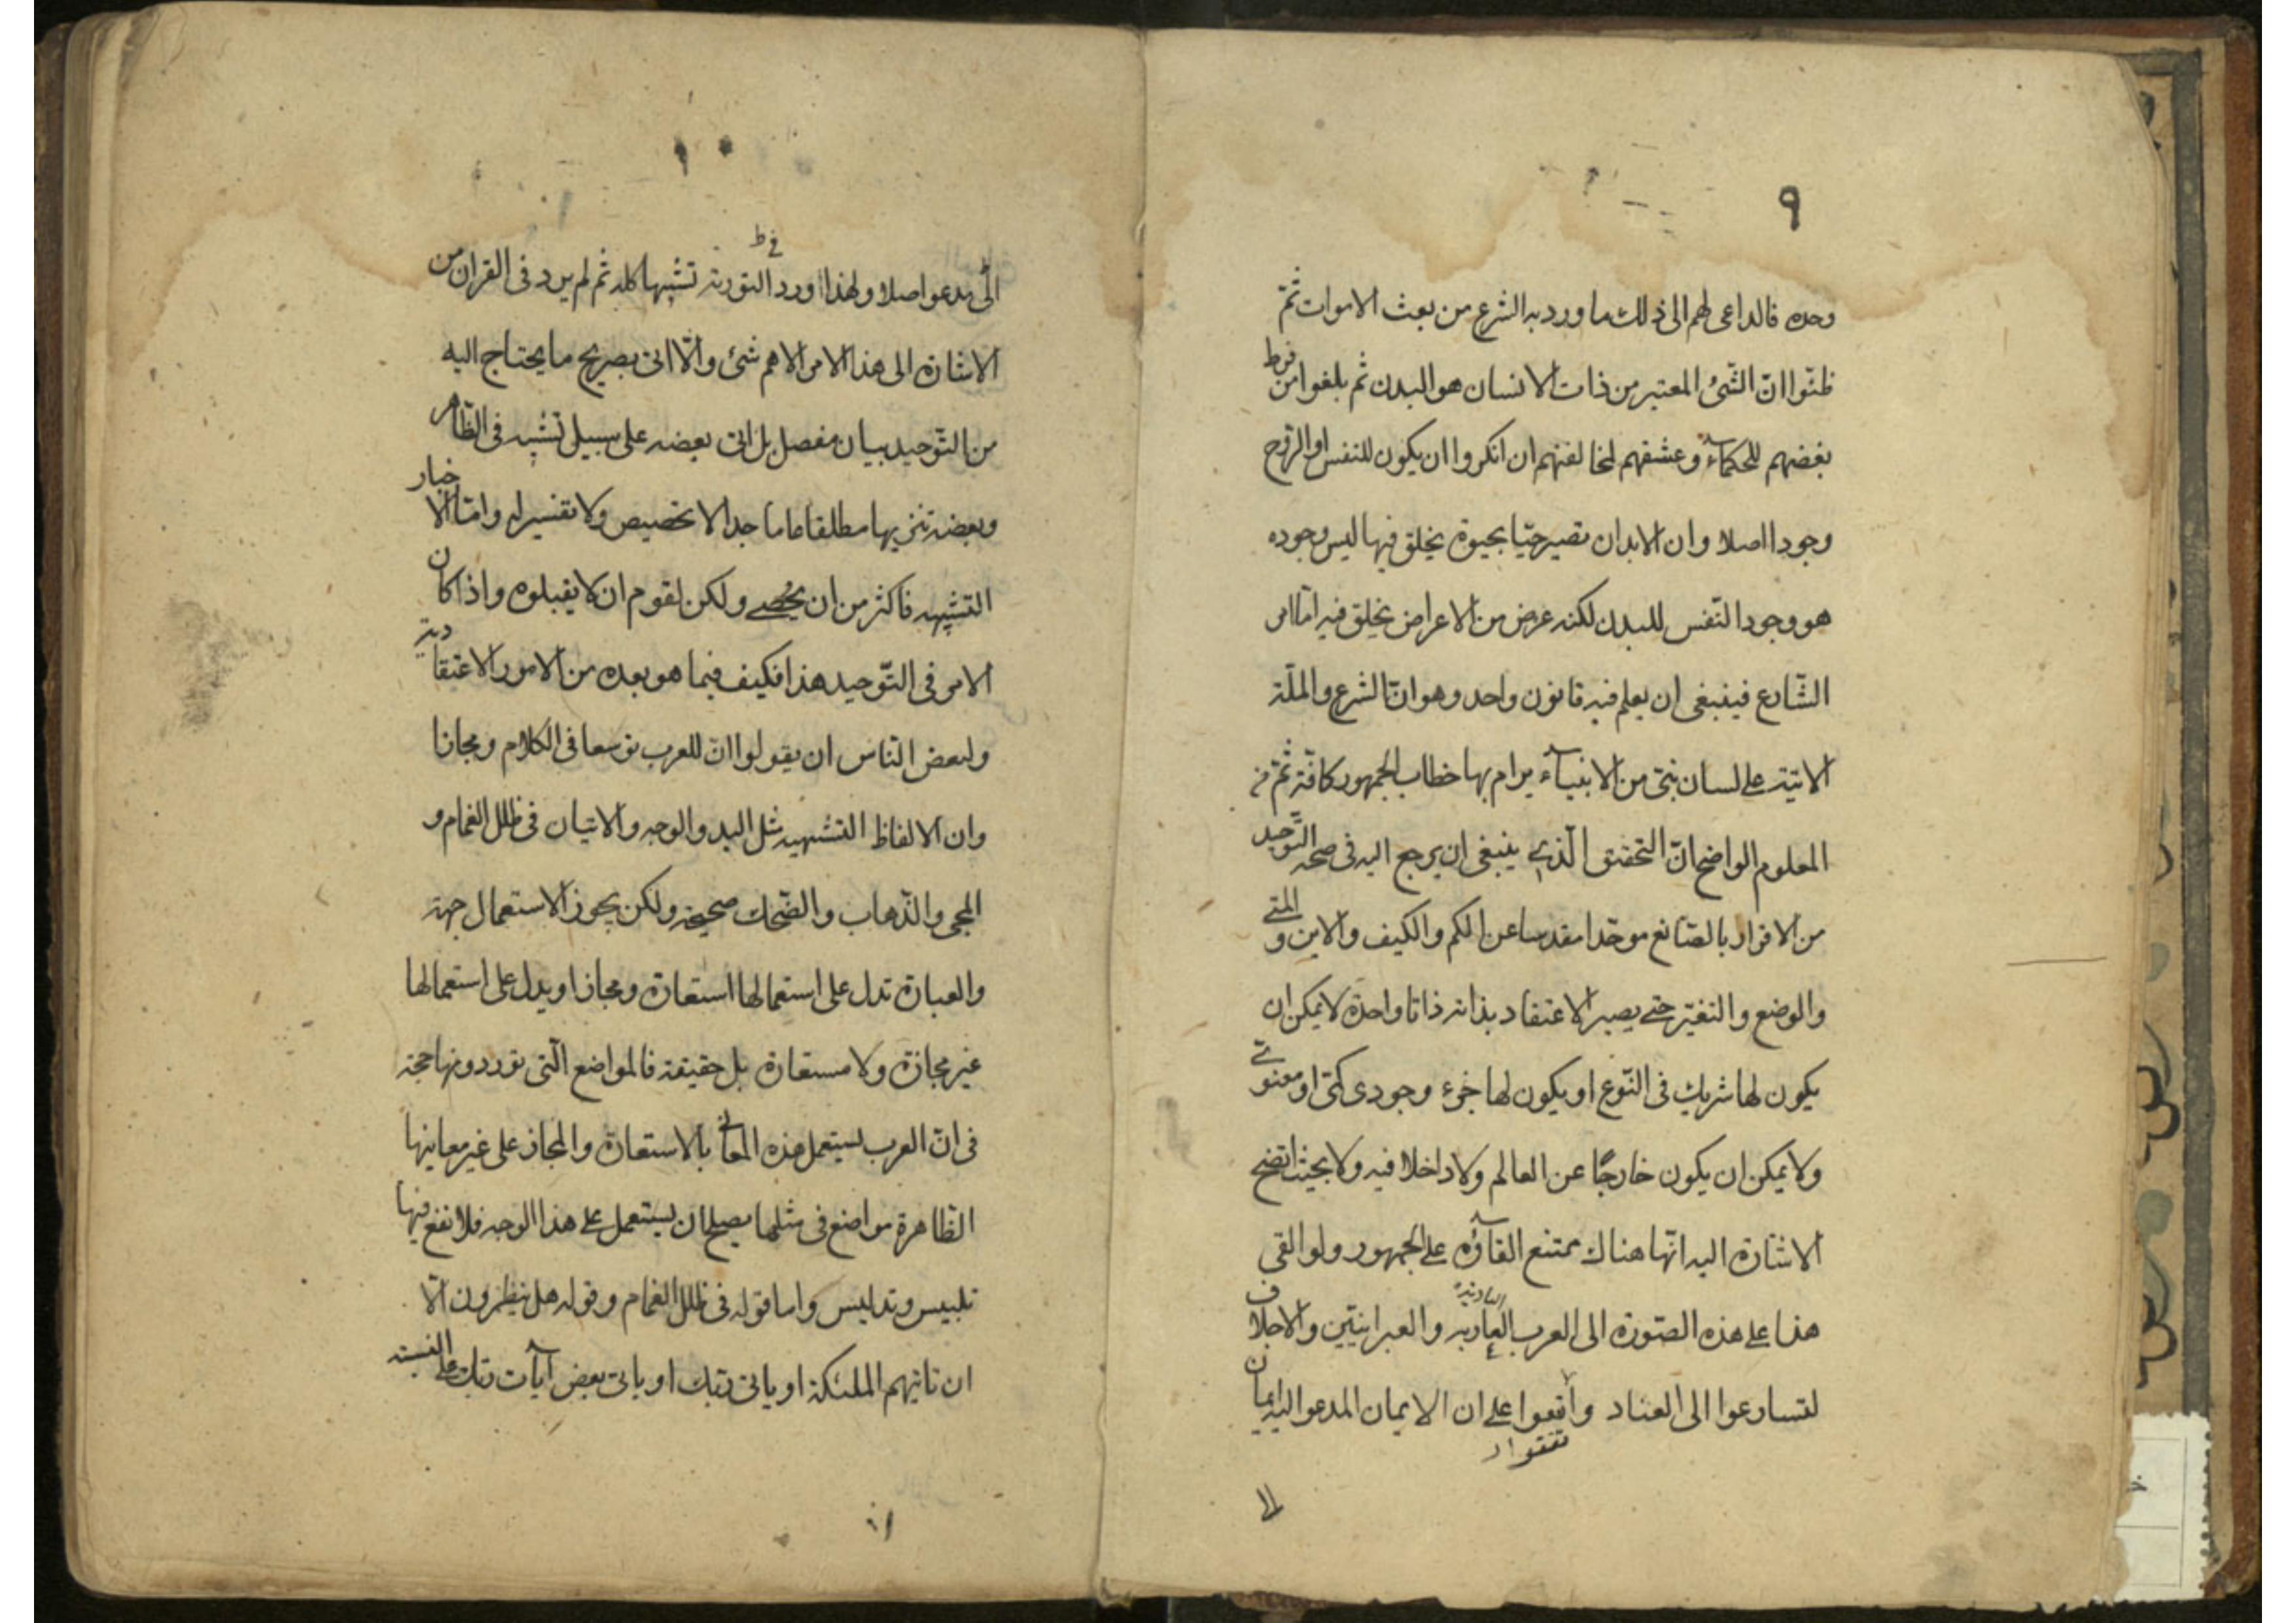 ٩
وحده فالداعى لهم الى ذلك ما ورد به الشرع من بعث الاموات ثمّ
ظنّوا انّ الشّئ المعتبر من ذات الانسان هو البدن ثم بلغوا من فرط
بغضهم للحكمآء وعشقهم لمخالفتهم ان انكروا ان يكون للنفس او الرّوح
وجودا اصلا وان الابدان تصير حيّا بحيوة يخلق فيها ليس وجوده
هو وجود النّفس للبدن لكنه عرض من الاعراض يخلق فيه امّا امر
الشّارع فينبغى ان يعلم فيه قانون واحد وهو انّ الشرع والملّة
الاتية على لسان نبىّ من الانبيآء يرام بها خطاب الجمهور كافّة ثمّ من
المعلوم الواضح انّ التحقيق الّذى ينبغى ان يرجع اليه فى صحه التّوحيد
من الاقرار بالصّانع موحّدا مقدسا عن الكم والكيف والاين و المتى
والوضع والتغيّر حتى يصير الاعتقاد بذاته ذاتا واحدة لا يمكن ان
يكون لها شريك فى النّوع او يكون لها جزء وجودى كمّى او معنوى
ولا يمكن ان يكون خارجًا عن العالم ولا داخلا فيه ولا بحيث اتضح
الاشارة اليه انّها هناك ممتنع القاؤه على الجمهور ولو القى
هذا على هذه الصّورة الى العرب العاربه والعبرانيّين والاجلاف
البادية
لتسارعوا الى العناد واتفعوا على ان الايمان المدعو اليه ايمان
تفقوا
الا
١٠
فى ط
الى مدعو اصلا ولهذا ورد التورية تشبيها كله ثم لم يرد فى القران من
الاشارة الى هذا الامر الاهم شئ والّا اتى بصريح ما يحتاج اليه
من التّوحيد بيان مفصل بل اتى بعضه على سبيل تشبيه فى الظّاهر
وبعضه تنزيها مطلقا عاما جدا لا تخصيص ولا تفسير له وامّا الاخبار
التشبيهه فاكثر من ان يحصى ولكن لقوم ان لا يقبلوه واذا كان
الامر فى التّوحيد هذا فكيف فيما هو بعده من الامور الاعتقادية
ولبعض النّاس ان يقولوا انّ للعرب توسعا فى الكلام ومجازا
وان الالفاظ التشبهيه مثل اليد والوجه والاتيان فى ظلل الغمام و
المجى والذّهاب والضّحك صحيحة ولكن يجوز الاستعمال جهة
والعبارة تدل على استعمالها استعارة ومجازا ويدل على استعمالها
غير مجازة ولا مستعارة بل حقيقة فالمواضع الّتى توردونها حجة
فى انّ العرب يستعمل هذه المعانى بالاستعارة والمجاز على غير معاينها
الظّاهرة مواضع فى مثلها يصلح ان يستعمل على هذا الوجه فلا نفع فيها
تلبيس وتدليس واما قوله فى ظلل الغمام وقوله هل ينظرون الّا
ان تاتيهم الملئكة او ياتى ربّك او ياتى بعض آيات ربّك على القسمه